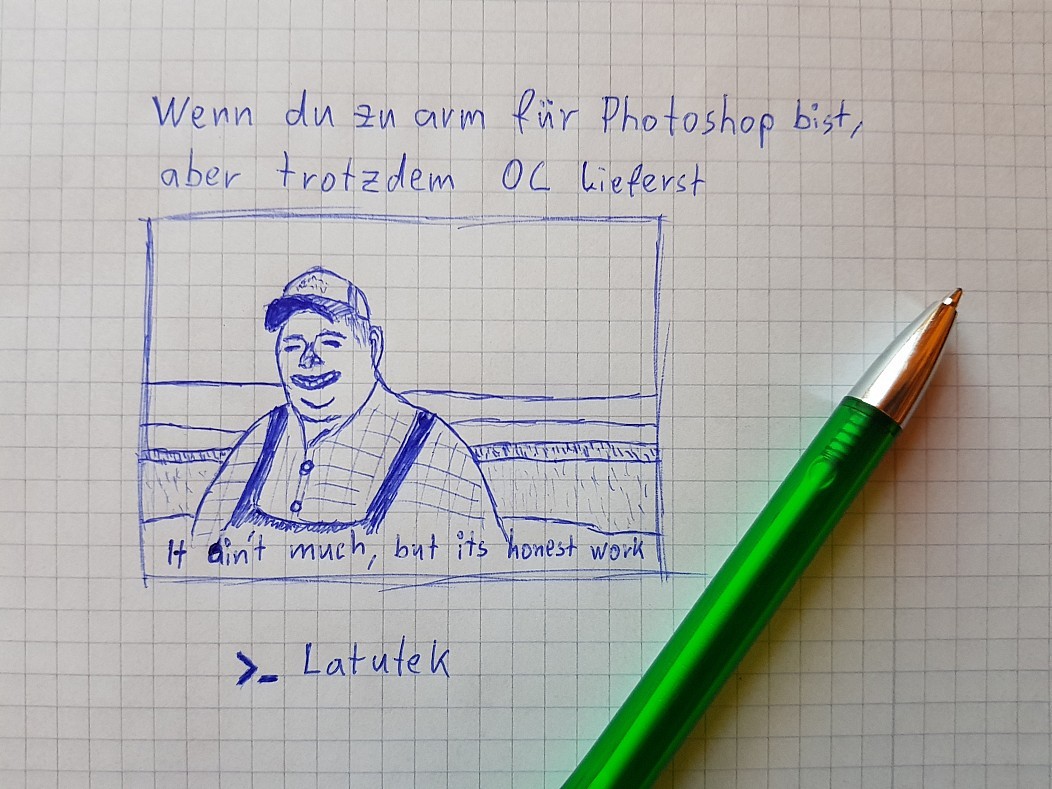 Wenn du zu arm für Photoshop bist,
aber trotzdem OC lieferst
It ain't much, but its honest work
>_ Latutek